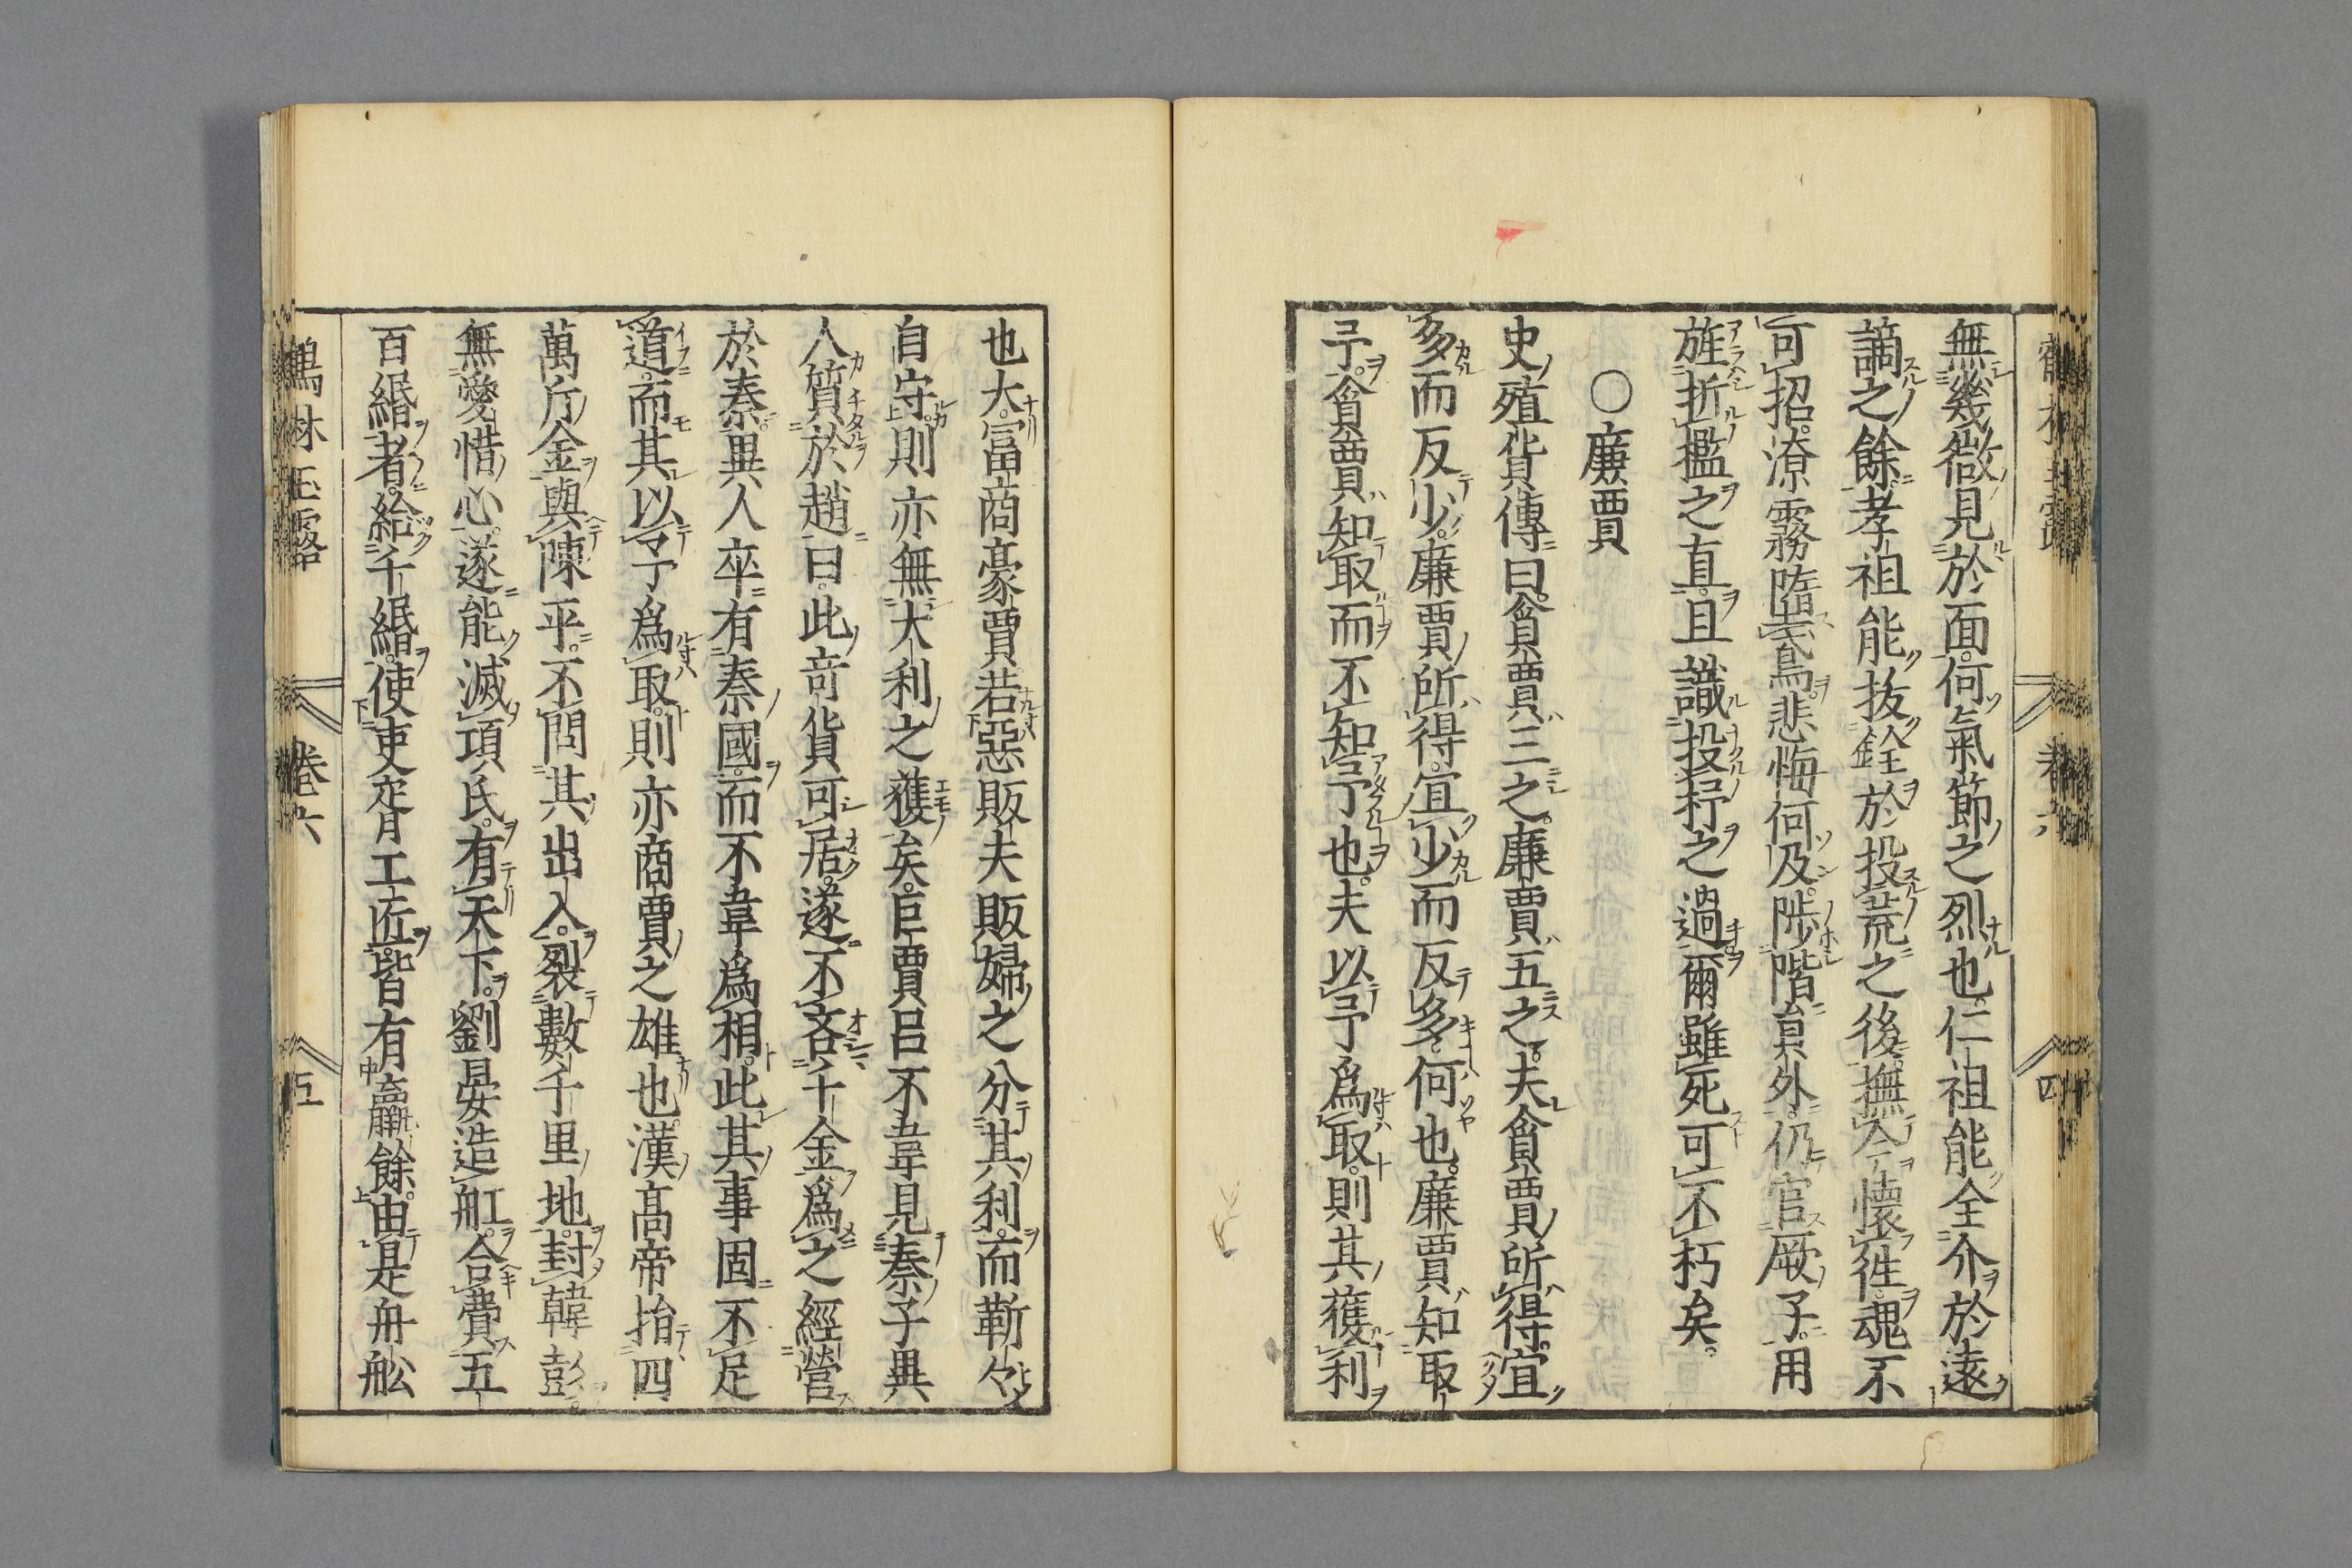 無幾微見於面何氣節之烈也仁祖能全介於遠
謫之餘孝祖能拔銓於投荒之後撫今懷徃魂不
可招潦霧墮鳶悲悔何及陟階貟外仍官厥子用
旌折檻之直且識投杼之過爾雖死可不朽矣
〇廉賈
史殖貨傳曰貪賈三之廉賈五之夫貪賈所得宜
多而反少廉賈所得宜少而反多何也廉賈知取
予貪賈知取而不知予也夫以予爲取則其獲利
也大富商豪賈若惡販夫販婦之分其利而靳々
自守則亦無大利之獲矣巨賈呂不韋見秦子異
人質於趙曰此竒貨可居遂不吝千金爲之經營
於秦異人卒有秦國而不韋爲相此其事固不足
道而其以予爲取則亦商賈之雄也漢髙帝捐四
萬斤金與陳平不問其出入裂數千里地封韓彭
無愛惜心遂能滅項氏有天下劉晏造舡合費五
百緡者給千緡使吏胥工匠皆有贏餘由是舟舩
鶴林玉露
卷六
四
鶴林玉露
卷六
五